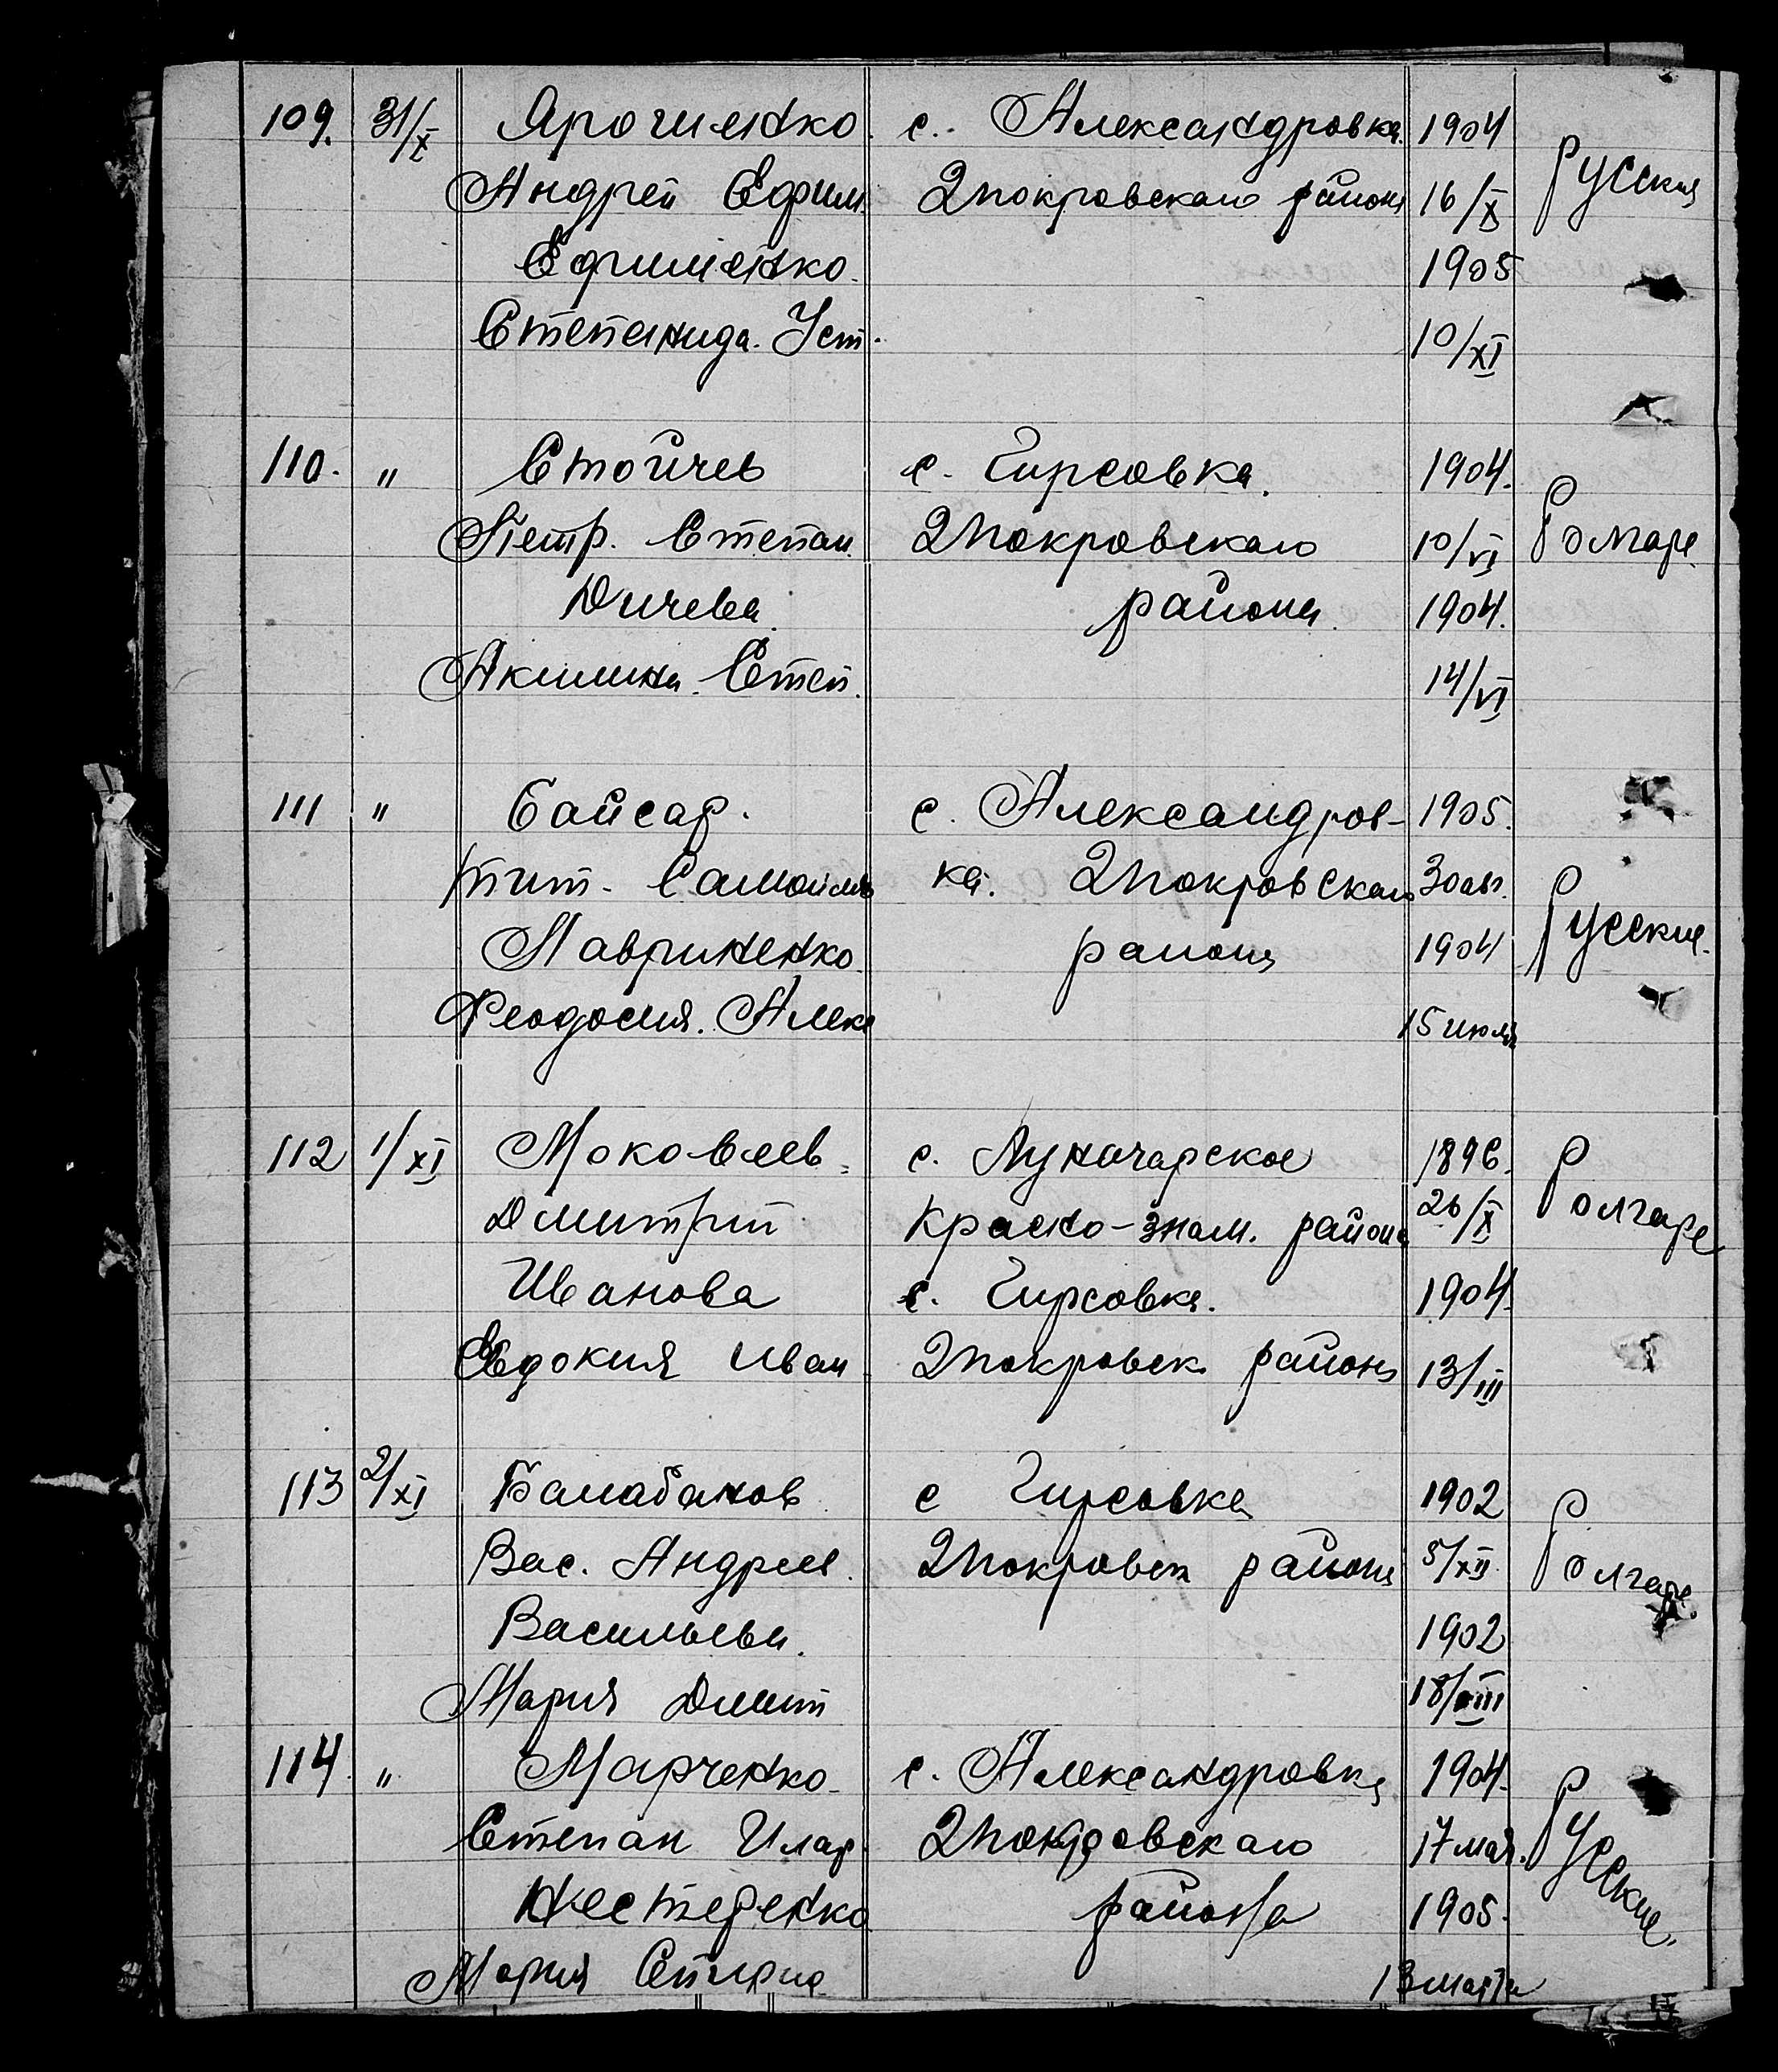 109. 31/X Ярошенко с. Александровка 1904
Андрей Ефим. 2покровскаго района 16/X Русския
Ефименко 1905
Степанида Уст. 10/XI
110. " Стойчев с. Гирсовка. 1904.
Петр. Степан 2покровскаго 10/VI Болгаре
Дичева района 1904.
Акилина Степ. 14/VI
111 " Байсар. с. Александров- 1905.
Тит. Самойлов ка. 2покровскаго 30 авг.
Лавриненко района 1904 Русские.
Феодосия. Алекс 15 июля
112 1/XI Моковеев с. Луначарское 1896. Болгаре
Дмитрий Красно-знам. района 26/X
Иванова с. Гирсовка. 1904.
Евдокия Иван 2покровск района 13/III
113 2/XI Балабанов с Гирсовка 1902
Вас. Андреев. 2покровск района 5/XII Болгаре.
Васильева. 1902
Мария Димит 18/VIII
114. " Марченко с. Александровка 1904.
Степан Илар. 2покровскаго 17 мая. Русские.
Нестеренко района 1905.
Мария Спирид 13 марта